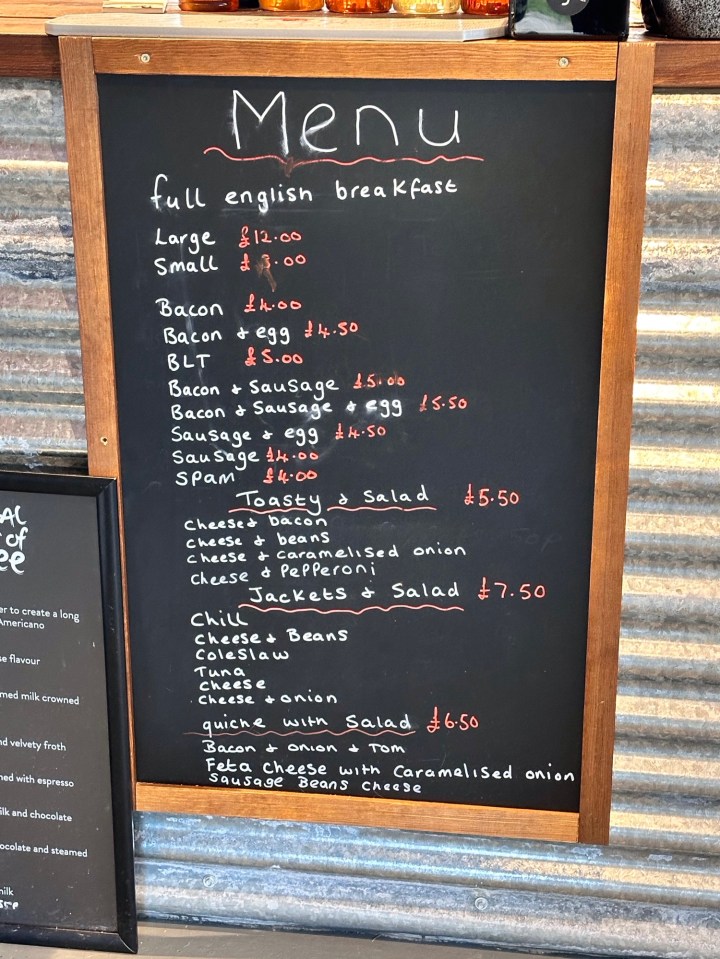 Menu
full english breakfast
Large £12.00
Small £ .00
Bacon £4.00
Bacon & egg £4.50
BLT £5.00
Bacon & Sausage £5.00
Bacon & Sausage & egg £5.50
Sausage & egg £4.50
Sausage £4.00
SPAM £4.00
Toasty & Salad £5.50
cheese & bacon
cheese & beans
cheese & caramelised onion
cheese & Pepperoni
Jackets & Salad £7.50
Chill
Cheese & Beans
ColeSlaw
Tuna
cheese
cheese & onion
quiche with Salad £6.50
Bacon & onion & Tom
Feta Cheese with Caramelised onion
Sausage Beans Cheese
AL
of
ee
er to create a long
Americano
se flavour
med milk crowned
nd velvety froth
ned with espresso
ilk and chocolate
ocolate and steamed
milk